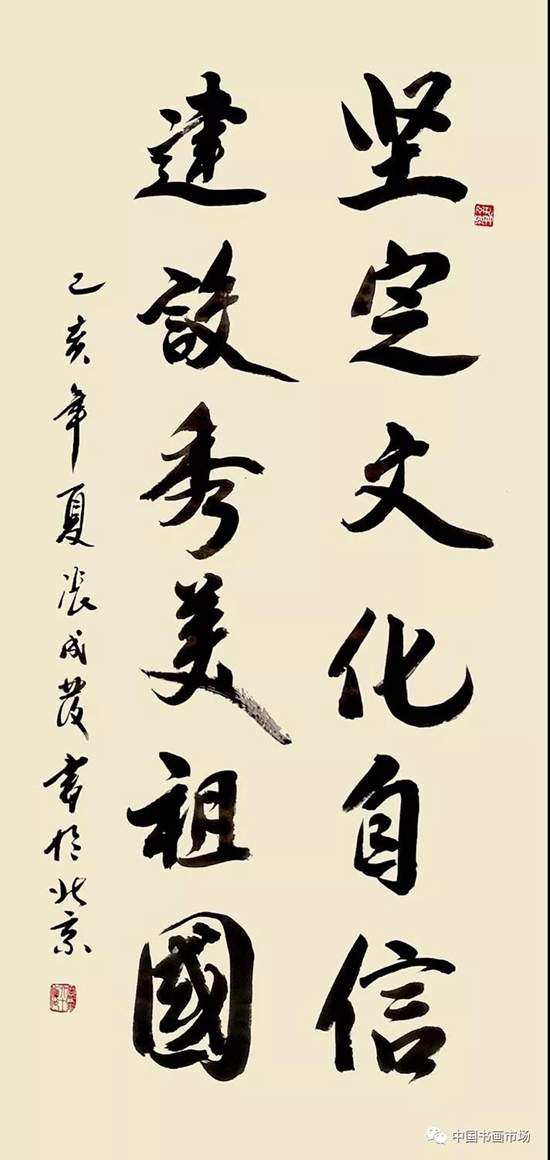 坚定文化自信
建設秀美祖國
乙亥年夏張成發書於北京
中国书画市场